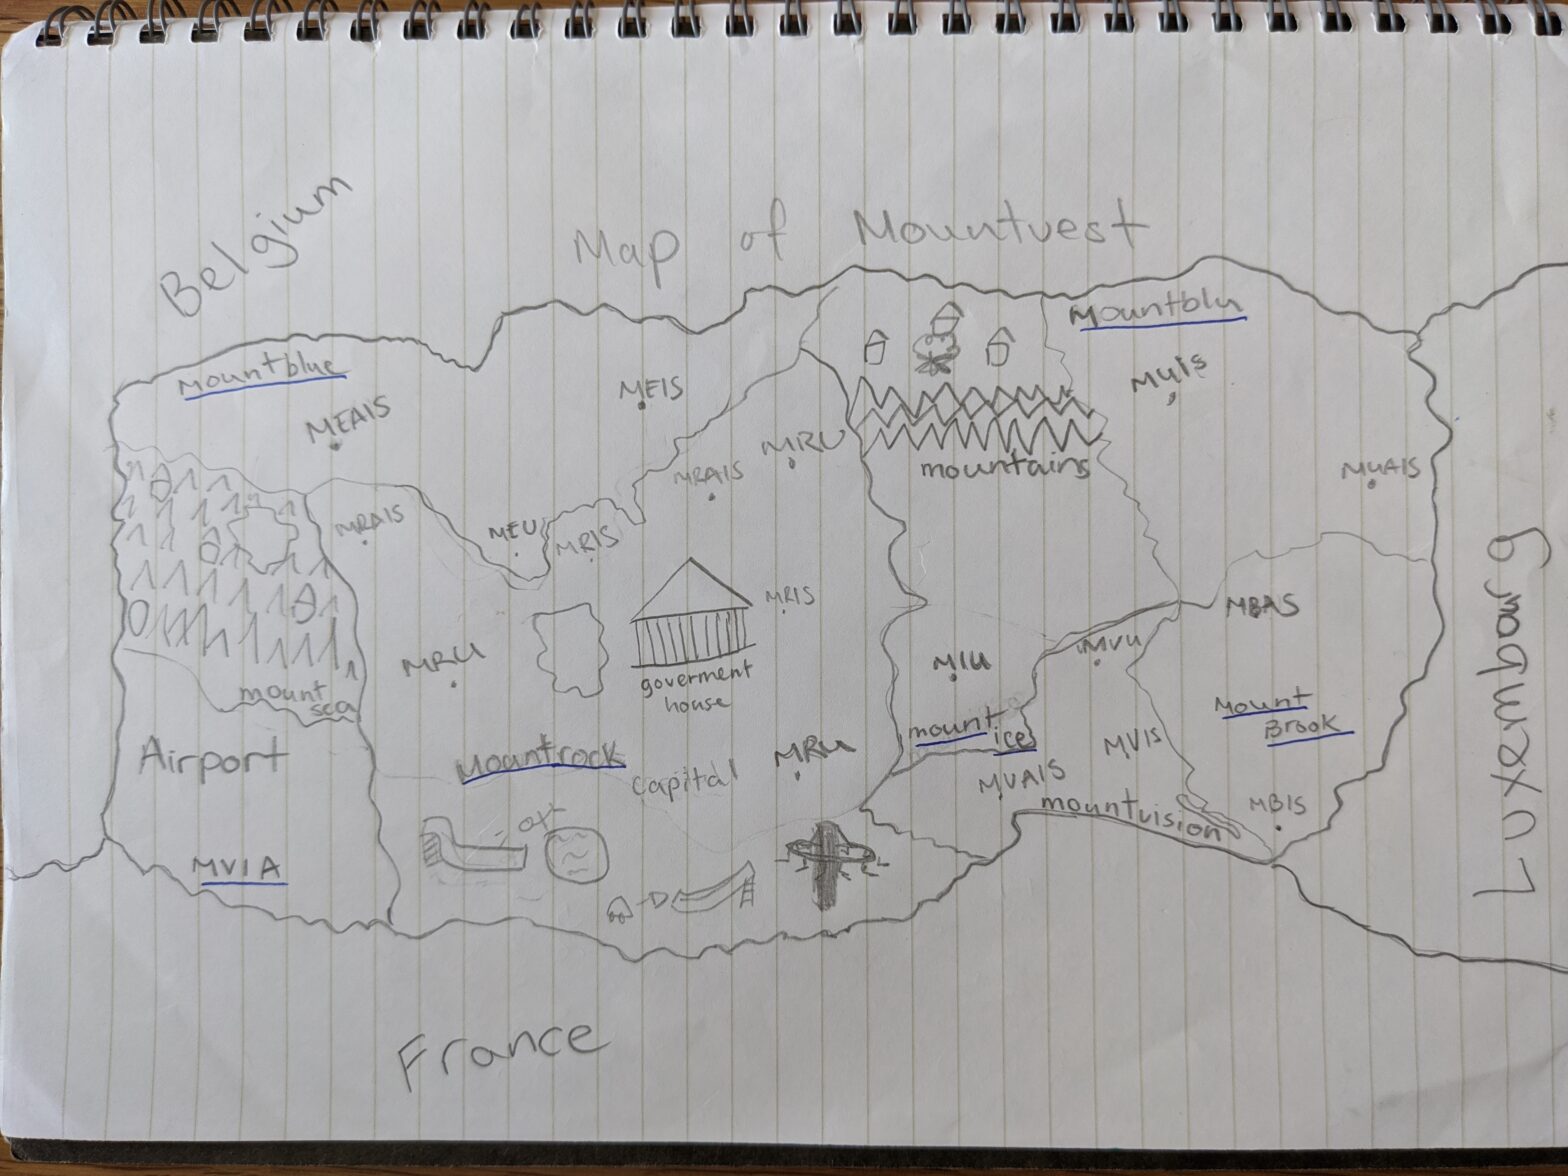 Belgium
Map of Mountvest
Mountblue
Mountblu
MEAIS
MEIS
MUIS
MRAIS
MEU
MRIS
MRAIS
MRU
mountains
MUAIS
MRIS
goverment
house
MRU
MIU
MVU
MBAS
mount
sea
Airport
Mountrock
Capital
MRU
mount
ice
MVIS
MVAIS
Mount
Brook
mountvision
MBIS
MVIA
France
Luxembourg